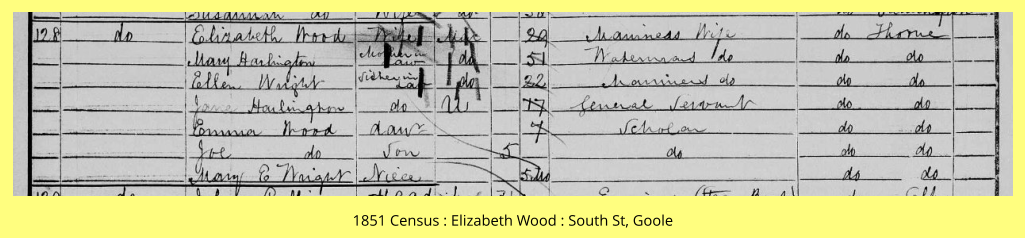 Susannah do Wife
128 do Elizabeth Wood Wife Mar 29 Mariness Wife do Thorne
Mary Harlington Mother in law do 51 Watermans do do do
Ellen Wright Sister in Law do 22 Mariners do do do
Jane Harlington do U 17 General Servant do do
Emma Wood daur 7 Scholar do do
Joe do Son 5 do do do
Mary E Wright Niece do do
do
1851 Census : Elizabeth Wood : South St, Goole